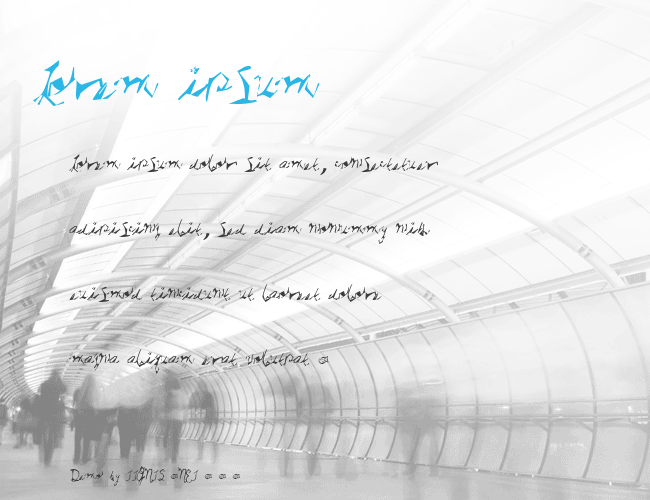 Lorem ipsum
Lorem ipsum dolor sit amet, consectetuer
adipiscing elit, sed diam nonummy nibh
euismod tincidunt ut laoreet dolore
magna aliquam erat volutpat
Demo by